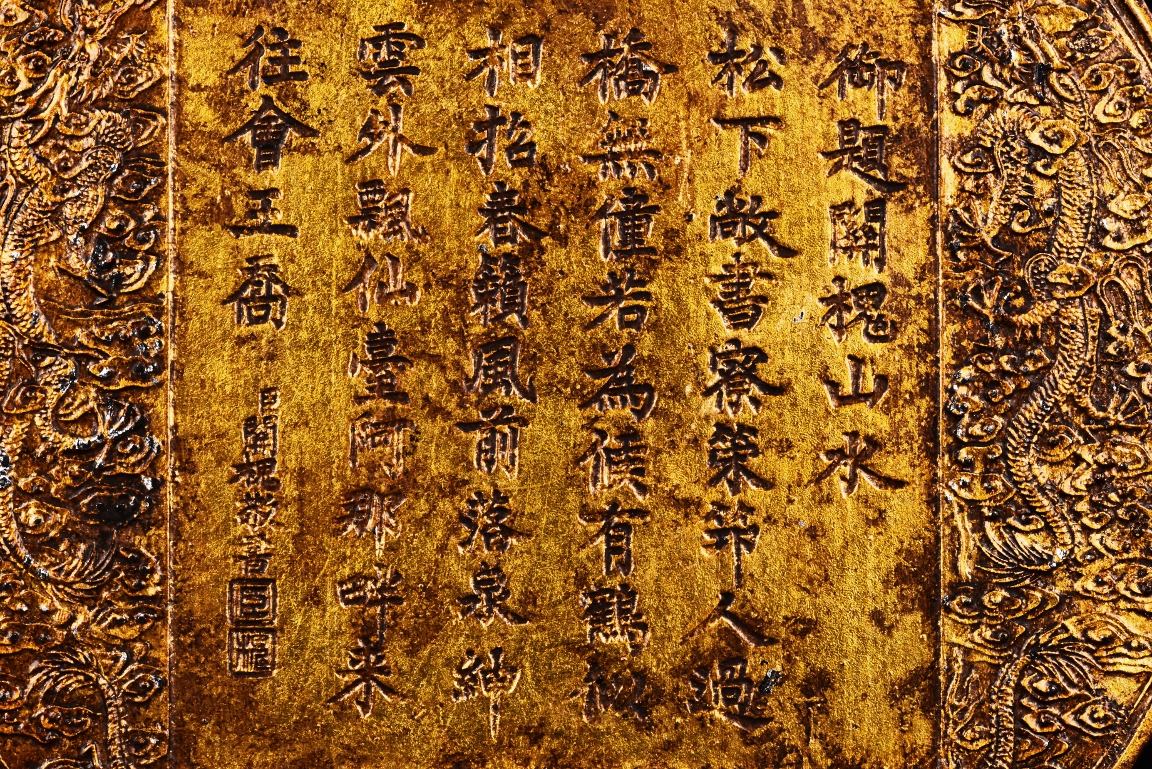 御題關槐山水
松下敞書寮策笻人過
橋無僮若為候有鶴似
相招春籟風前落泉紳
雲外飄仙臺阿那畔来
往會王喬
臣關槐敬書
臣 槐